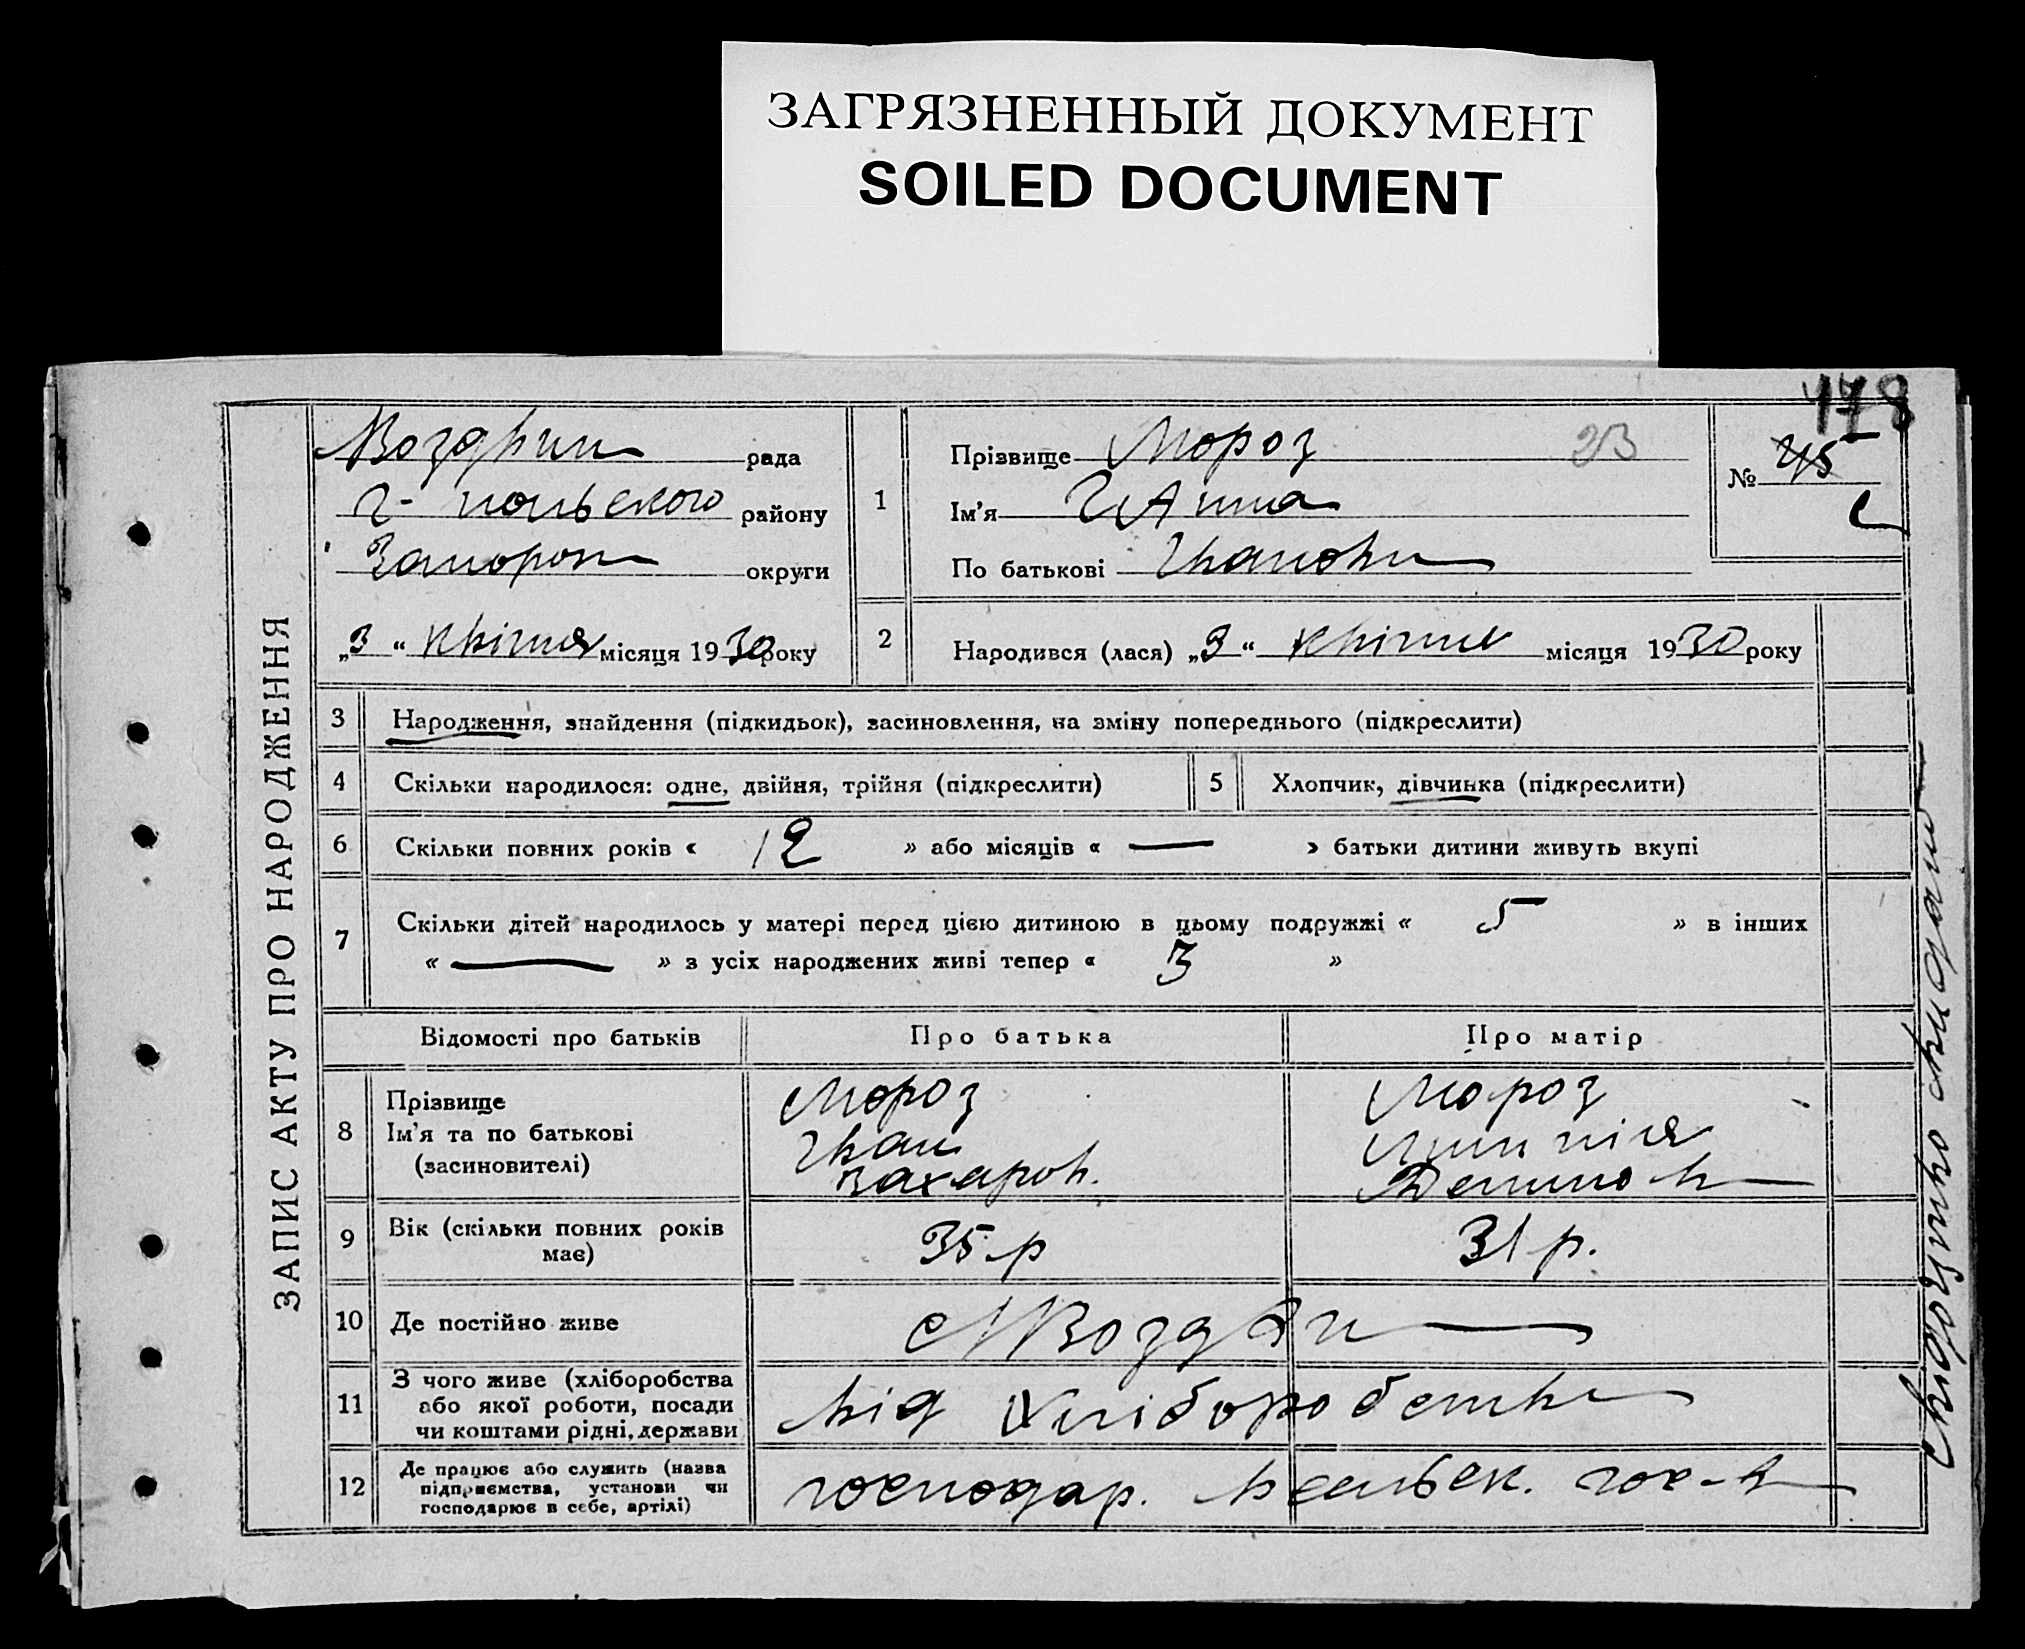 ЗАГРЯЗНЕННЫЙ ДОКУМЕНТ
SOILED DOCUMENT
178
ЗАПИС АКТУ ПРО НАРОДЖЕННЯ
рада
району
округи
„3“ квітня місяця 1930 року
1
Прізвище Мороз
Ім’я Ганна
По батькові Іванови
№ 45
2
Народився (лася) „3“ квітня місяця 1930 року
3 Народження, знайдення (підкидьок), засиновлення, на зміну попереднього (підкреслити)
4 Скільки народилося: одне, двійня, трійня (підкреслити)
5 Хлопчик, дівчинка (підкреслити)
6 Скільки повних років « 12 » або місяців « — » батьки дитини живуть вкупі
7 Скільки дітей народилось у матері перед цією дитиною в цьому подружжі « 5 » в інших
« — » з усіх народжених живі тепер « 3 »
Відомості про батьків Про батька Про матір
8 Прізвище Мороз Мороз
Ім’я та по батькові Іван
(засиновителі) Захаров.
9 Вік (скільки повних років має) 35 р 31 р.
10 Де постійно живе
11 З чого живе (хліборобства або якої роботи, посади чи коштами рідні, держави від хліборобства
12 Де працює або служить (назва підприємства, установи чи господарює в себе, артілі) господар. в сельск. гос-в